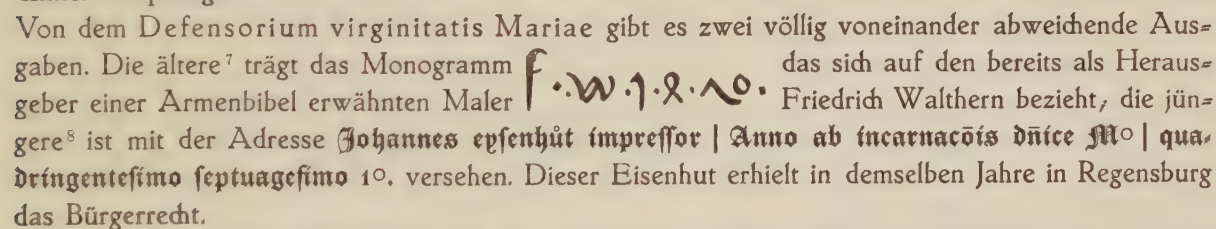 Von dem Defensorium virginitatis Mariae gibt es zwei völlig voneinander abweichende Aus=
gaben. Die ältere⁷ trägt das Monogramm f·w·1·4·70· das sich auf den bereits als Heraus=
geber einer Armenbibel erwähnten Maler Friedrich Walthern bezieht, die jün=
gere⁸ ist mit der Adresse Johannes eysenhůt impressor | Anno ab incarnacōis dn̄ice M⁰ | qua=
dringentesimo septuagesimo 1⁰. versehen. Dieser Eisenhut erhielt in demselben Jahre in Regensburg
das Bürgerrecht.